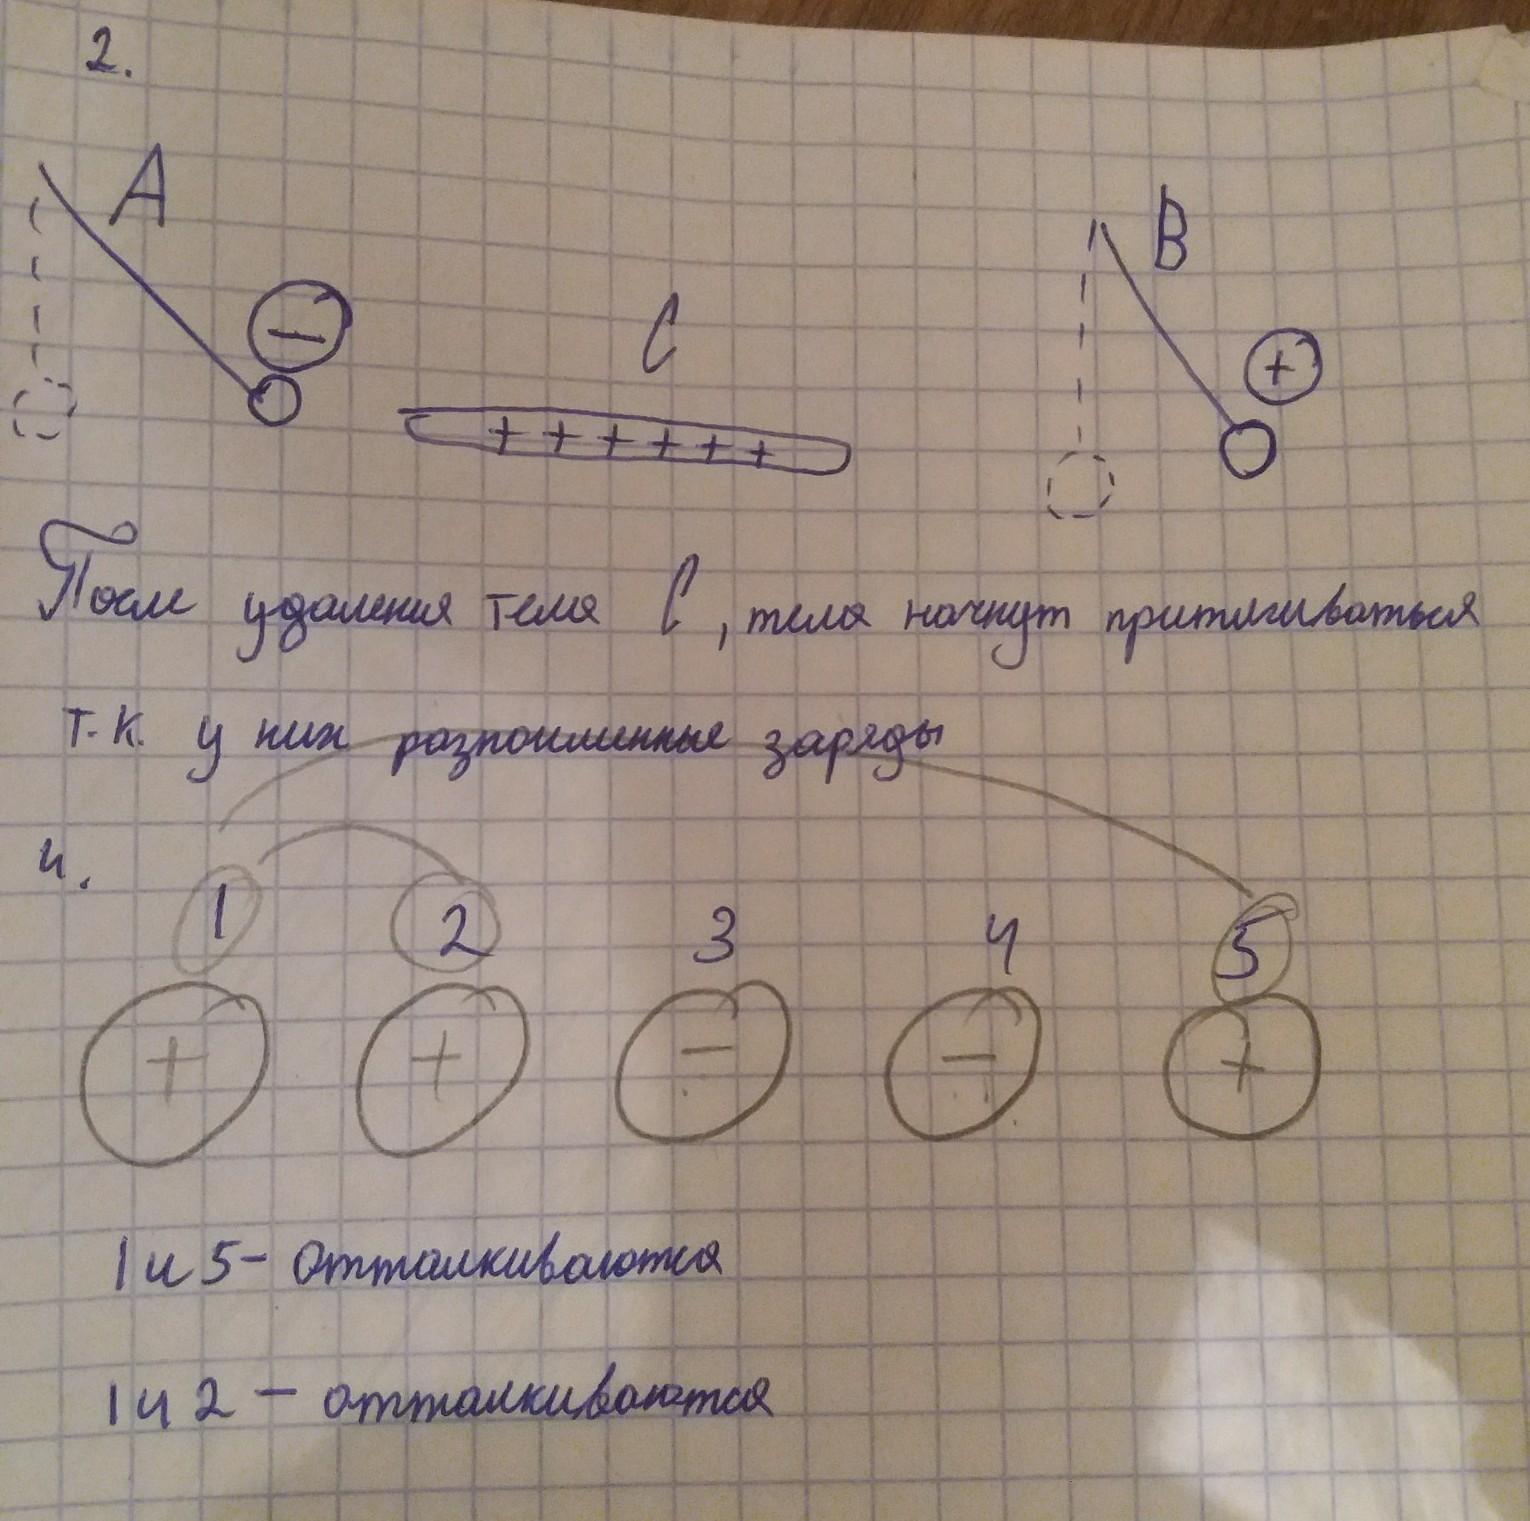 2.
A
B
−
C
+
+ + + + + +
После удаления тела C, тела начнут притягиваться
т.к. у них разноименные заряды
4.
1 2 3 4 5
+ + − − +
1 и 5 - отталкиваются
1 и 2 - отталкиваются